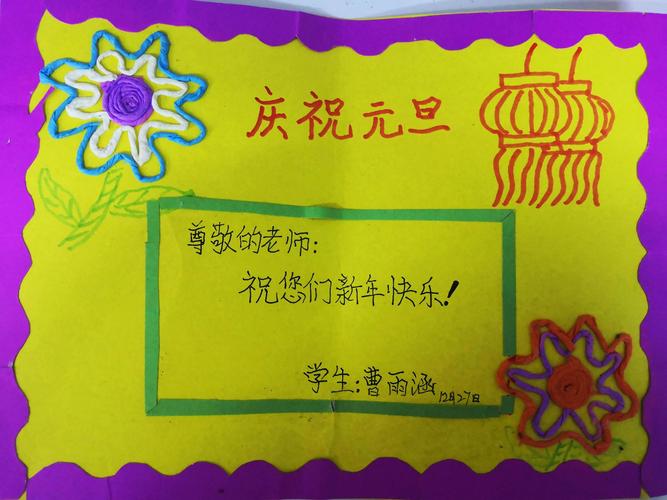 庆祝元旦
尊敬的老师:
祝您们新年快乐!
学生:曹雨涵
12月27日